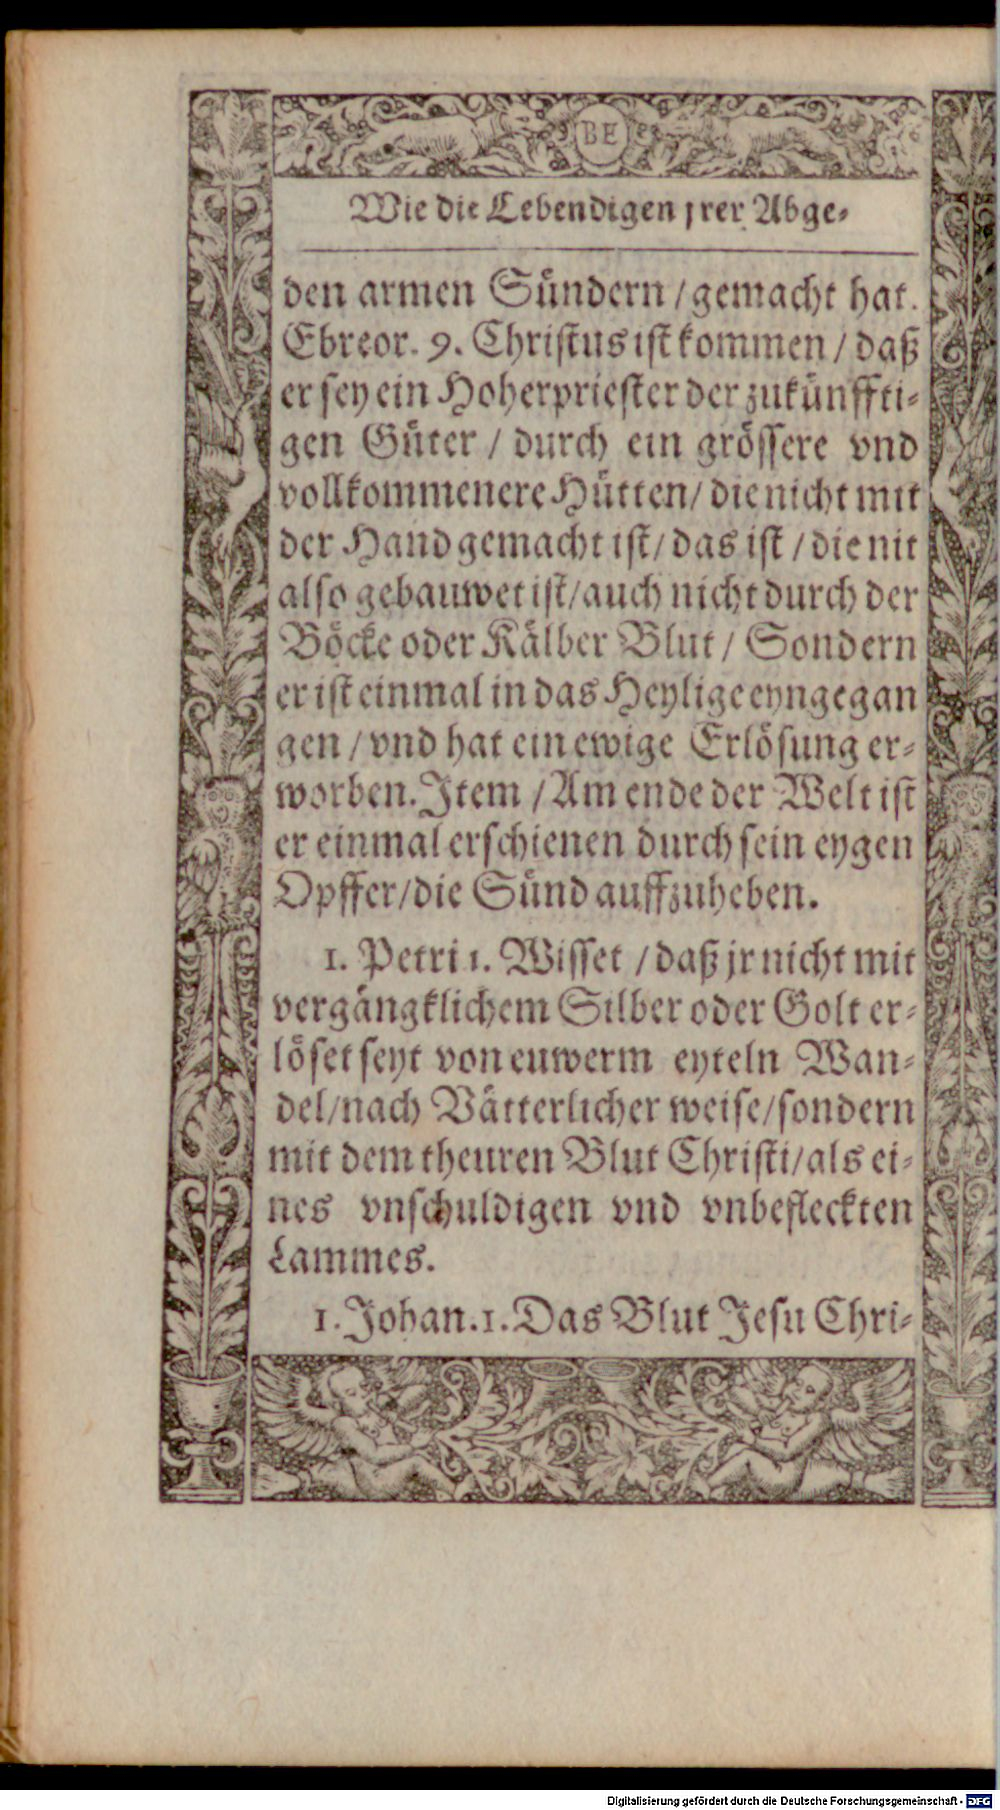 BE
Wie die Lebendigen jrer Abge-
den armen Sündern / gemacht hat.
Ebreor. 9. Christus ist kommen / daß
er sey ein Hoherpriester der zukünffti-
gen Güter / durch ein grössere vnd
vollkommenere Hütten / die nicht mit
der Hand gemacht ist / das ist / die nit
also gebauwet ist / auch nicht durch der
Böcke oder Kälber Blut / Sondern
er ist einmal in das Heylige eyngegan
gen / vnd hat ein ewige Erlösung er-
worben. Item / Am ende der Welt ist
er einmal erschienen durch sein eygen
Opffer / die Sünd auffzuheben.
1. Petri 1. Wisset / daß jr nicht mit
vergängklichem Silber oder Golt er-
löset seyt von euwerm eyteln Wan-
del / nach Vätterlicher weise / sondern
mit dem theuren Blut Christi / als ei-
nes vnschuldigen vnd vnbefleckten
Lammes.
1. Johan. 1. Das Blut Jesu Chri-
Digitalisierung gefördert durch die Deutsche Forschungsgemeinschaft - DFG